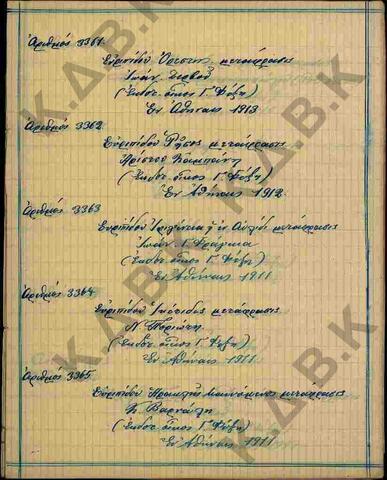 Ἀριθμός 3361.
Εὐριπίδου Ὀρέστης μετάφρασις
Ἰωάν. Ζερβοῦ
(Ἐκδοτ. οἶκος Γ. Φέξη)
Ἐν Ἀθήναις 1913
Ἀριθμός 3362.
Εὐριπίδου Ρῆσος μετάφρασις
Χρίστου Καμπάνη
(Ἐκδοτ. οἶκος Γ. Φέξη)
Ἐν Ἀθήναις 1912
Ἀριθμός 3363
Εὐριπίδου Ἰφιγένεια ἡ ἐν Αὐλίδι μετάφρασις
Ἰωάν. Γ. Φραγκιᾶ
(Ἐκδοτ. οἶκος Γ. Φέξη)
Ἐν Ἀθήναις 1911
Ἀριθμός 3364.
Εὐριπίδου Ἱκέτιδες μετάφρασις
Ν. Ποριώτη
(Ἐκδοτ. οἶκος Γ. Φέξη)
Ἐν Ἀθήναις 1911
Ἀριθμός 3365
Εὐριπίδου Ἡρακλῆς Μαινόμενος μετάφρασις
Κ. Βάρναλη
(Ἐκδοτ. οἶκος Γ. Φέξη)
Ἐν Ἀθήναις 1911
Κ.Δ.Β.Κ
Κ.Δ.Β.Κ
Κ.Δ.Β.Κ